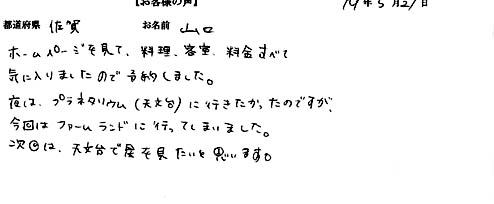 【お客様の声】 19年5月27日
都道府県 佐賀 お名前 山口
ホームページを見て、料理、客室、料金すべて
気に入りましたので予約しました。
夜は、プラネタリウム(天文台)に行きたかったのですが、
今回はファームランドに行ってしまいました。
次回は、天文台で星を見たいと思います。